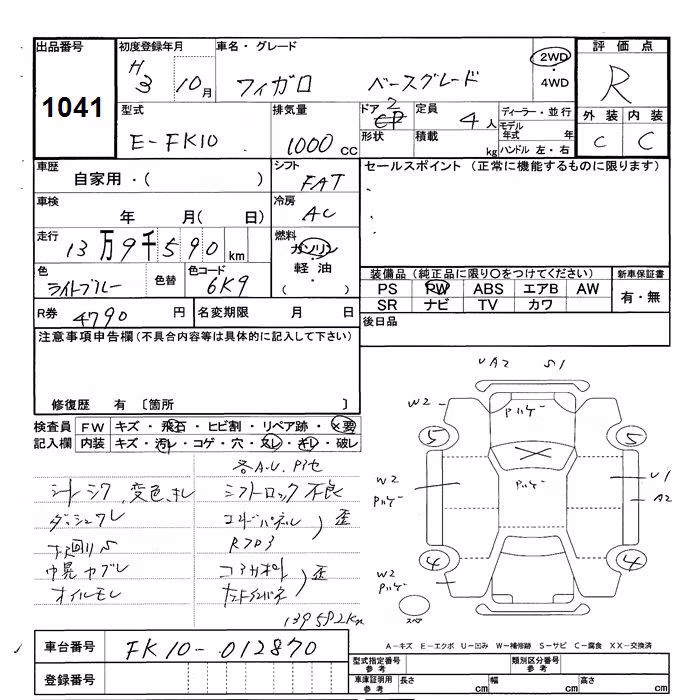 出品番号 初度登録年月 車名・グレード 評価点
1041
H3 10月 フィガロ ベースグレード 2WD・4WD R
型式 排気量 ドア 定員 ディーラー・並行
E-FK10 1000cc 2 4人 モデル年式 年
形状 積載 kg ハンドル 左・右
外装 内装
C C
車歴 シフト セールスポイント (正常に機能するものに限ります)
自家用・( ) FAT
車検 冷房
年 月( 日) AC
走行 燃料
13万9千590km ガソリン・軽油・( )
色 色替 色コード
ライトブルー 6K9
装備品(純正品に限り○をつけてください) 新車保証書
PS PW ABS エアB AW 有・無
SR ナビ TV カワ
R券 4790円 名変期限 月 日 後日品
注意事項申告欄(不具合内容等は具体的に記入して下さい)
修復歴 有 〔箇所 〕
検査員 FW キズ・飛石・ヒビ割・リペア跡・×要
記入欄 内装 キズ・汚レ・コゲ・穴・スレ・キレ・破レ
各A.U.
シートシワ、変色、キレ シフトロック不良
コアサポ 歪
オイルモレ
139592km
UA2 S1
W2 ハゲ
5 5
W2 ハゲ ハゲ U1
A2
4 4
W2
ハゲ
スペア
A-キズ E-エクボ U-凹み W-補修跡 S-サビ C-腐食 XX-交換済
車台番号 FK10-012870
登録番号
型式指定番号 参考 類別区分番号 参考
車庫証明用 参考 長さ cm 幅 cm 高さ cm